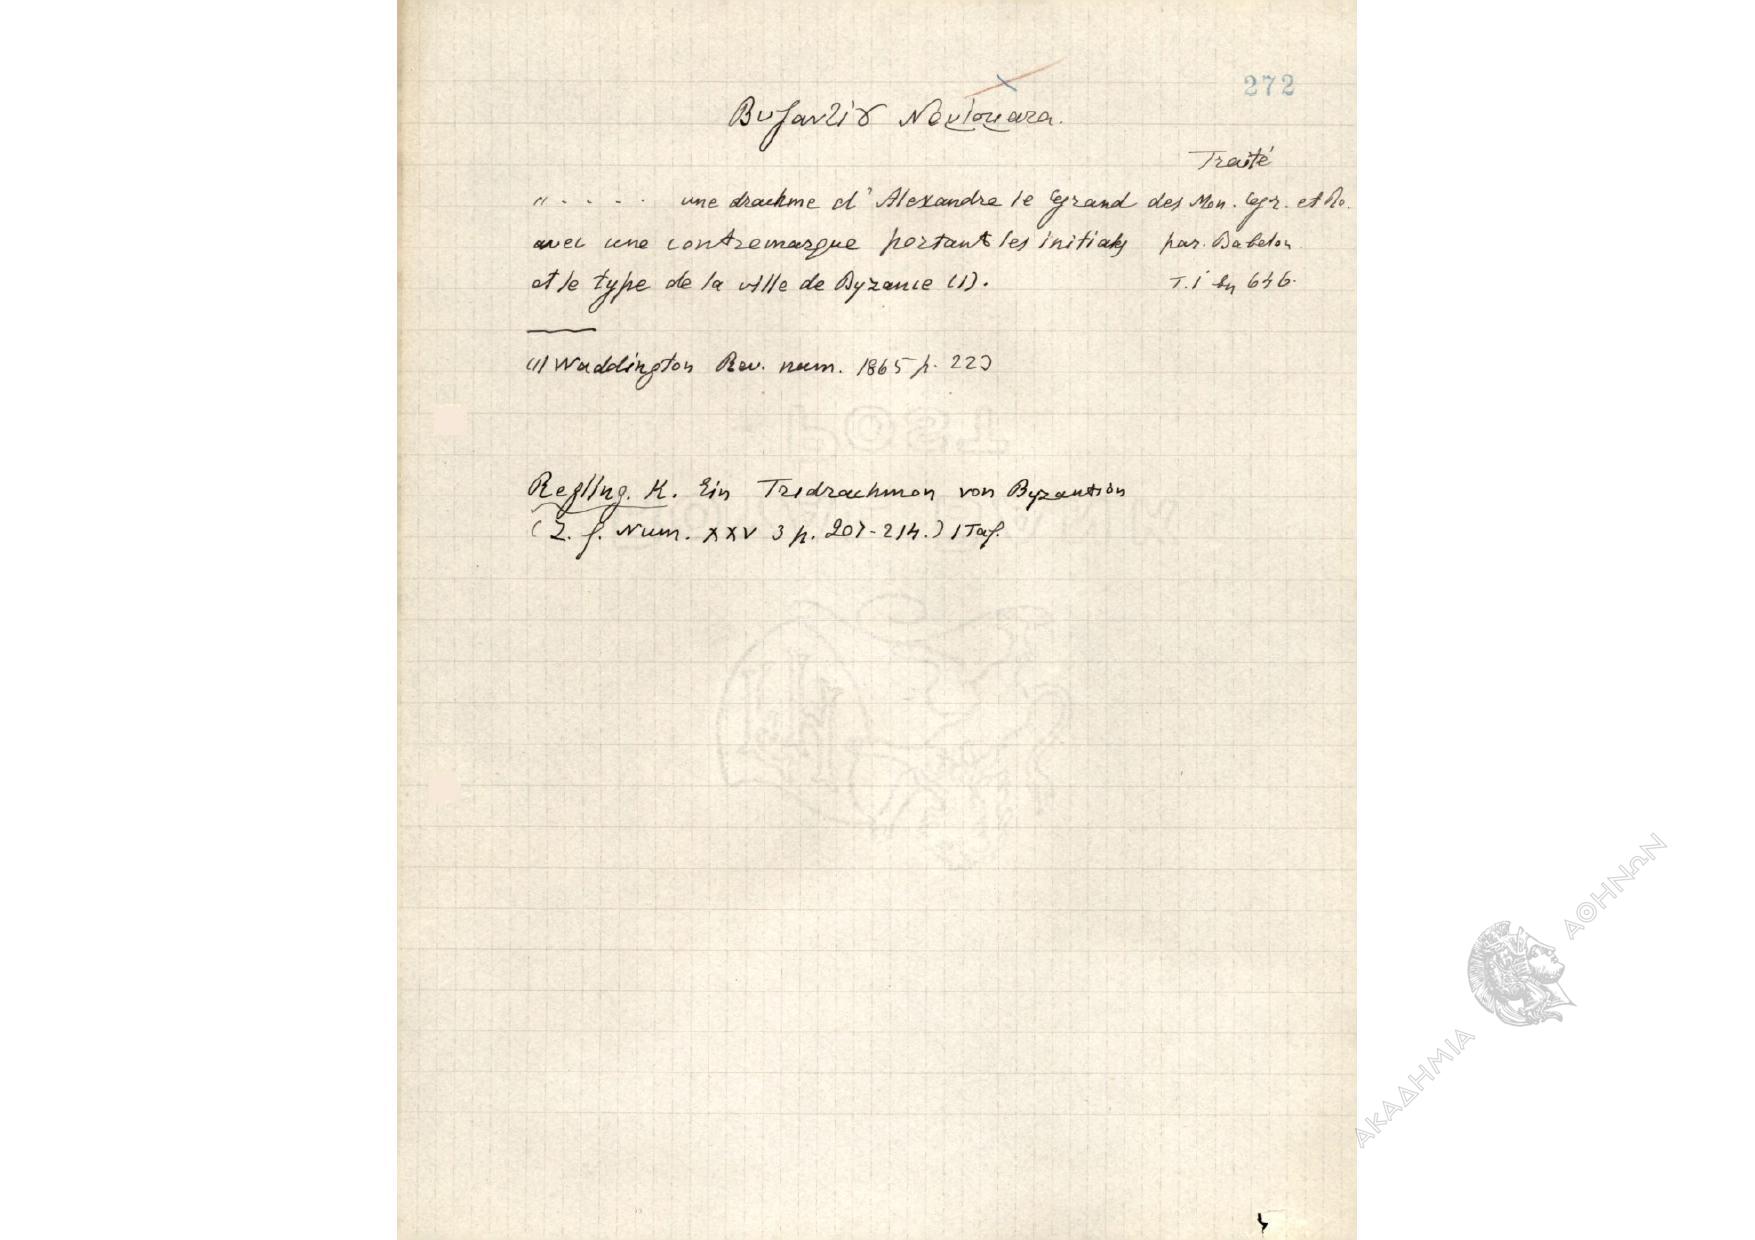 272
Βυζαντίȣ Νομίσματα.
Traité
" . . . . une drachme d'Alexandre le Grand des Mon. Gr. et Ro.
avec une contremarque portant les initials par. Babelon
et le type de la ville de Byzance (1). T. I 646.
(1) Waddington Rev. num. 1865 p. 22)
Regling. K. Ein Tridrachmon von Byzantion
(Z. f. Num. XXV 3 p. 207-214.) 1 Taf.
POST
ΑΚΑΔΗΜΙΑ ΑΘΗΝΩΝ